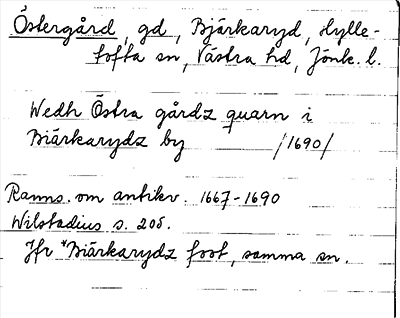 Östergård, gd, Bjärkaryd, Hylle-
tofta sn, Västra hd, Jönk. l.
Wedh Östra gårdz quarn i
Biärkarydz by /1690/
Ranns. om antikv. 1667-1690
Wilstadius s. 205.
Jfr *Biärkarydz foot, samma sn.